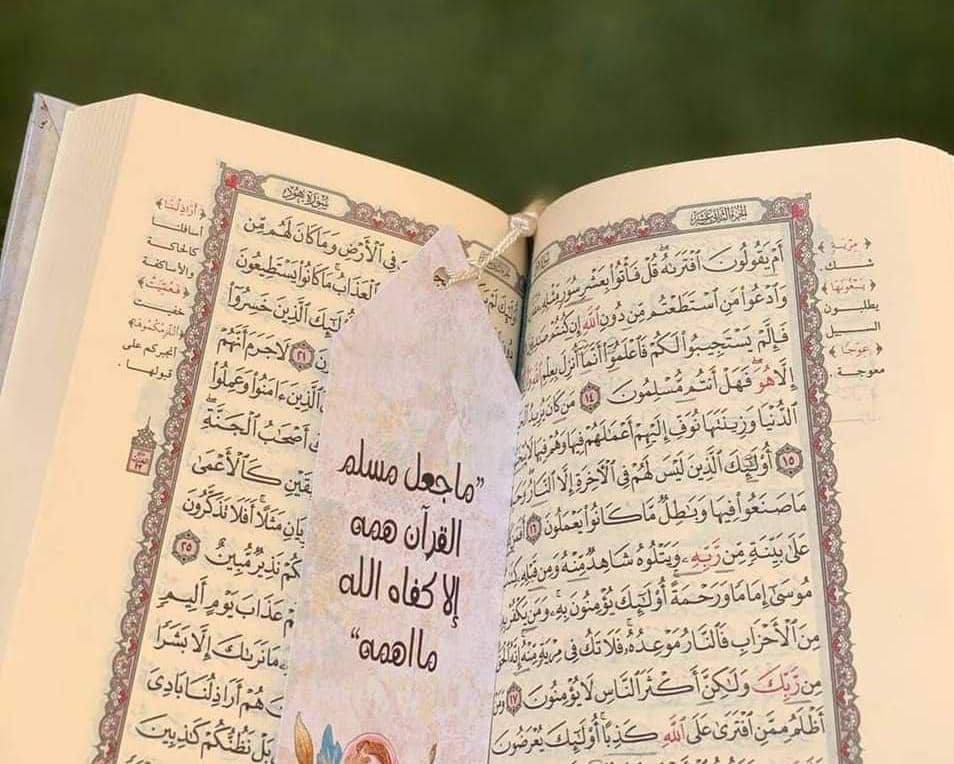 الجزء الثاني عشر
أَمْ يَقُولُونَ ٱفْتَرَىٰهُ قُلْ فَأْتُوا۟ بِعَشْرِ سُوَرٍ مِّثْلِهِۦ
وَٱدْعُوا۟ مَنِ ٱسْتَطَعْتُم مِّن دُونِ ٱللَّهِ إِن كُنتُمْ
فَإِلَّمْ يَسْتَجِيبُوا۟ لَكُمْ فَٱعْلَمُوٓا۟ أَنَّمَآ أُنزِلَ بِعِلْمِ
إِلَّا هُوَ فَهَلْ أَنتُم مُّسْلِمُونَ ١٤ مَن كَانَ يُرِيدُ
ٱلدُّنْيَا وَزِينَتَهَا نُوَفِّ إِلَيْهِمْ أَعْمَٰلَهُمْ فِيهَا وَهُمْ فِيهَا
١٥ أُو۟لَٰٓئِكَ ٱلَّذِينَ لَيْسَ لَهُمْ فِى ٱلْءَاخِرَةِ إِلَّا ٱلنَّارُ
مَا صَنَعُوا۟ فِيهَا وَبَٰطِلٌ مَّا كَانُوا۟ يَعْمَلُونَ ١٦
عَلَىٰ بَيِّنَةٍ مِّن رَّبِّهِۦ وَيَتْلُوهُ شَاهِدٌ مِّنْهُ وَمِن قَبْلِهِۦ
مُوسَىٰٓ إِمَامًا وَرَحْمَةً أُو۟لَٰٓئِكَ يُؤْمِنُونَ بِهِۦ وَمَن يَكْفُرْ
مِنَ ٱلْأَحْزَابِ فَٱلنَّارُ مَوْعِدُهُۥ فَلَا تَكُ فِى مِرْيَةٍ مِّنْهُ إِنَّهُ
مِن رَّبِّكَ وَلَٰكِنَّ أَكْثَرَ ٱلنَّاسِ لَا يُؤْمِنُونَ ١٧
أَظْلَمُ مِمَّنِ ٱفْتَرَىٰ عَلَى ٱللَّهِ كَذِبًا أُو۟لَٰٓئِكَ يُعْرَضُونَ
﴿مِرْيَةٍ﴾
شك
﴿يَبْغُونَهَا﴾
يطلبون
السبل
﴿عِوَجًا﴾
معوجة
"ما جعل مسلم
القرآن همه
إلا كفاه الله
ما اهمه"
سورة هود
فِى ٱلْأَرْضِ وَمَا كَانَ لَهُم مِّن
ٱلْعَذَابُ مَا كَانُوا۟ يَسْتَطِيعُونَ
ٱلَّذِينَ خَسِرُوٓا۟
٢١ لَا جَرَمَ أَنَّهُمْ
ٱلَّذِينَ ءَامَنُوا۟ وَعَمِلُوا۟
أَصْحَٰبُ ٱلْجَنَّةِ
كَٱلْأَعْمَىٰ
مَثَلًا أَفَلَا تَذَكَّرُونَ
نَذِيرٌ مُّبِينٌ ٢٥
عَذَابَ يَوْمٍ أَلِيمٍ
مَا نَرَىٰكَ إِلَّا بَشَرًا
هُمْ أَرَاذِلُنَا بَادِىَ
بَلْ نَظُنُّكُمْ كَٰذِبِينَ
﴿أَرَاذِلُنَا﴾
أسافلنا
كالحاكة
والأساكفة
﴿فَعُمِّيَتْ﴾
خفيت
﴿أَنُلْزِمُكُمُوهَا﴾
أنجبركم على
قبولها.